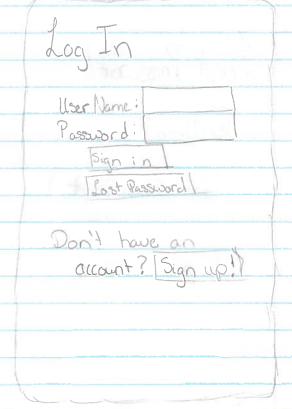 Log In
User Name:
Password:
Sign in
Lost Password
Don't have an
account? Sign up!